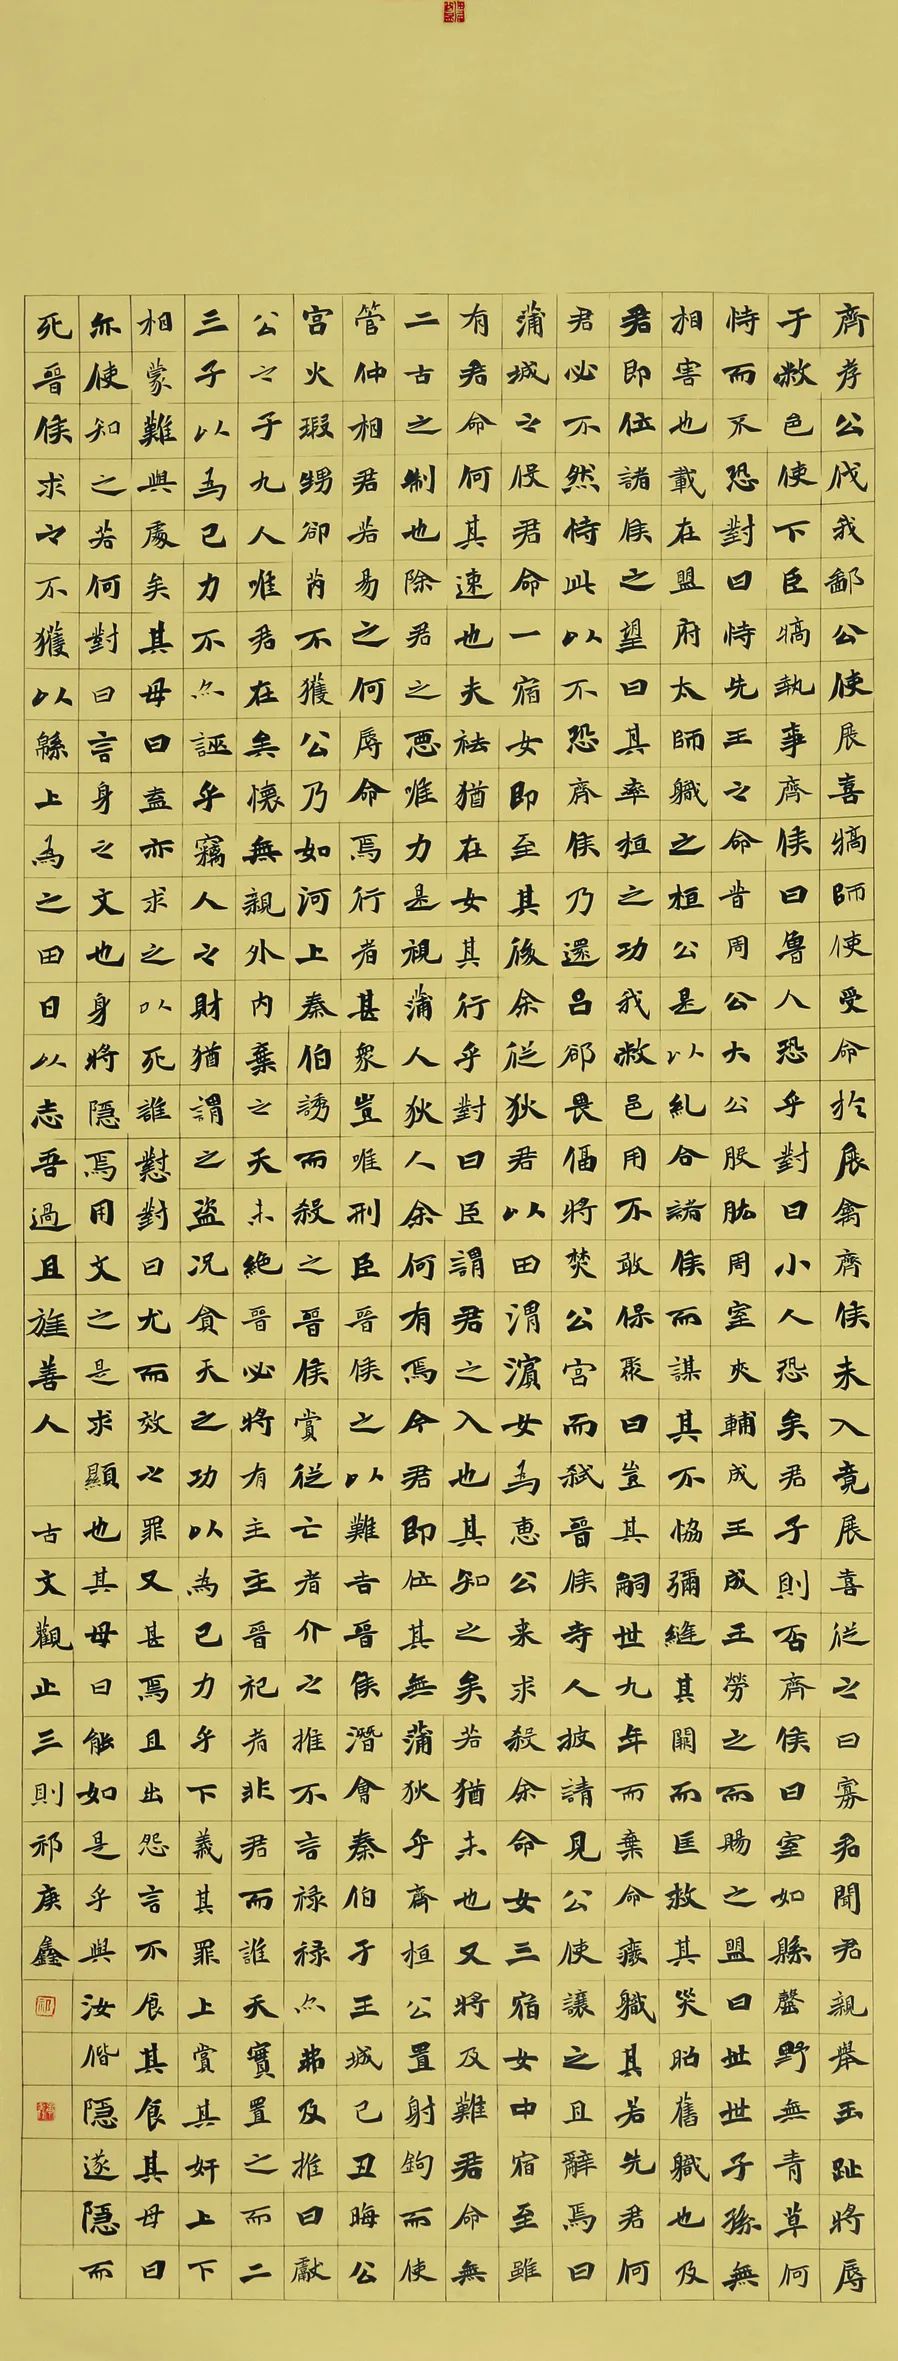 齊孝公伐我鄙公使展喜犒師使受命於展禽齊侯未入竟展喜從之曰寡君聞君親舉玉趾將辱
于敝邑使下臣犒執事齊侯曰魯人恐乎對曰小人恐矣君子則否齊侯曰室如縣罄野無青草何
恃而不恐對曰恃先王之命昔周公大公股肱周室夾輔成王成王勞之而賜之盟曰世世子孫無
相害也載在盟府太師職之桓公是以糾合諸侯而謀其不協彌縫其闕而匡救其災昭舊職也及
君即位諸侯之望曰其率桓之功我敝邑用不敢保聚曰豈其嗣世九年而棄命廢職其若先君何
君必不然恃此以不恐齊侯乃還呂郤畏偪將焚公宮而弒晉侯寺人披請見公使讓之且辭焉曰
蒲城之役君命一宿女即至其後余從狄君以田渭濱女為惠公來求殺余命女三宿女中宿至雖
有君命何其速也夫袪猶在女其行乎對曰臣謂君之入也其知之矣若猶未也又將及難君命無
二古之制也除君之惡唯力是視蒲人狄人余何有焉今君即位其無蒲狄乎齊桓公置射鉤而使
管仲相君若易之何辱命焉行者甚眾豈唯刑臣晉侯之以難告晉侯潛會秦伯于王城己丑晦公
宮火瑕甥郤芮不獲公乃如河上秦伯誘而殺之晉侯賞從亡者介之推不言祿祿亦弗及推曰獻
公之子九人唯君在矣懷無親外內棄之天未絕晉必將有主主晉祀者非君而誰天實置之而二
三子以為己力不亦誣乎竊人之財猶謂之盜況貪天之功以為己力乎下義其罪上賞其奸上下
相蒙難與處矣其母曰盍亦求之以死誰懟對曰尤而效之罪又甚焉且出怨言不食其食其母曰
亦使知之若何對曰言身之文也身將隱焉用文之是求顯也其母曰能如是乎與汝偕隱遂隱而
死晉侯求之不獲以緜上為之田曰以志吾過且旌善人 古文觀止三則祁庚鑫